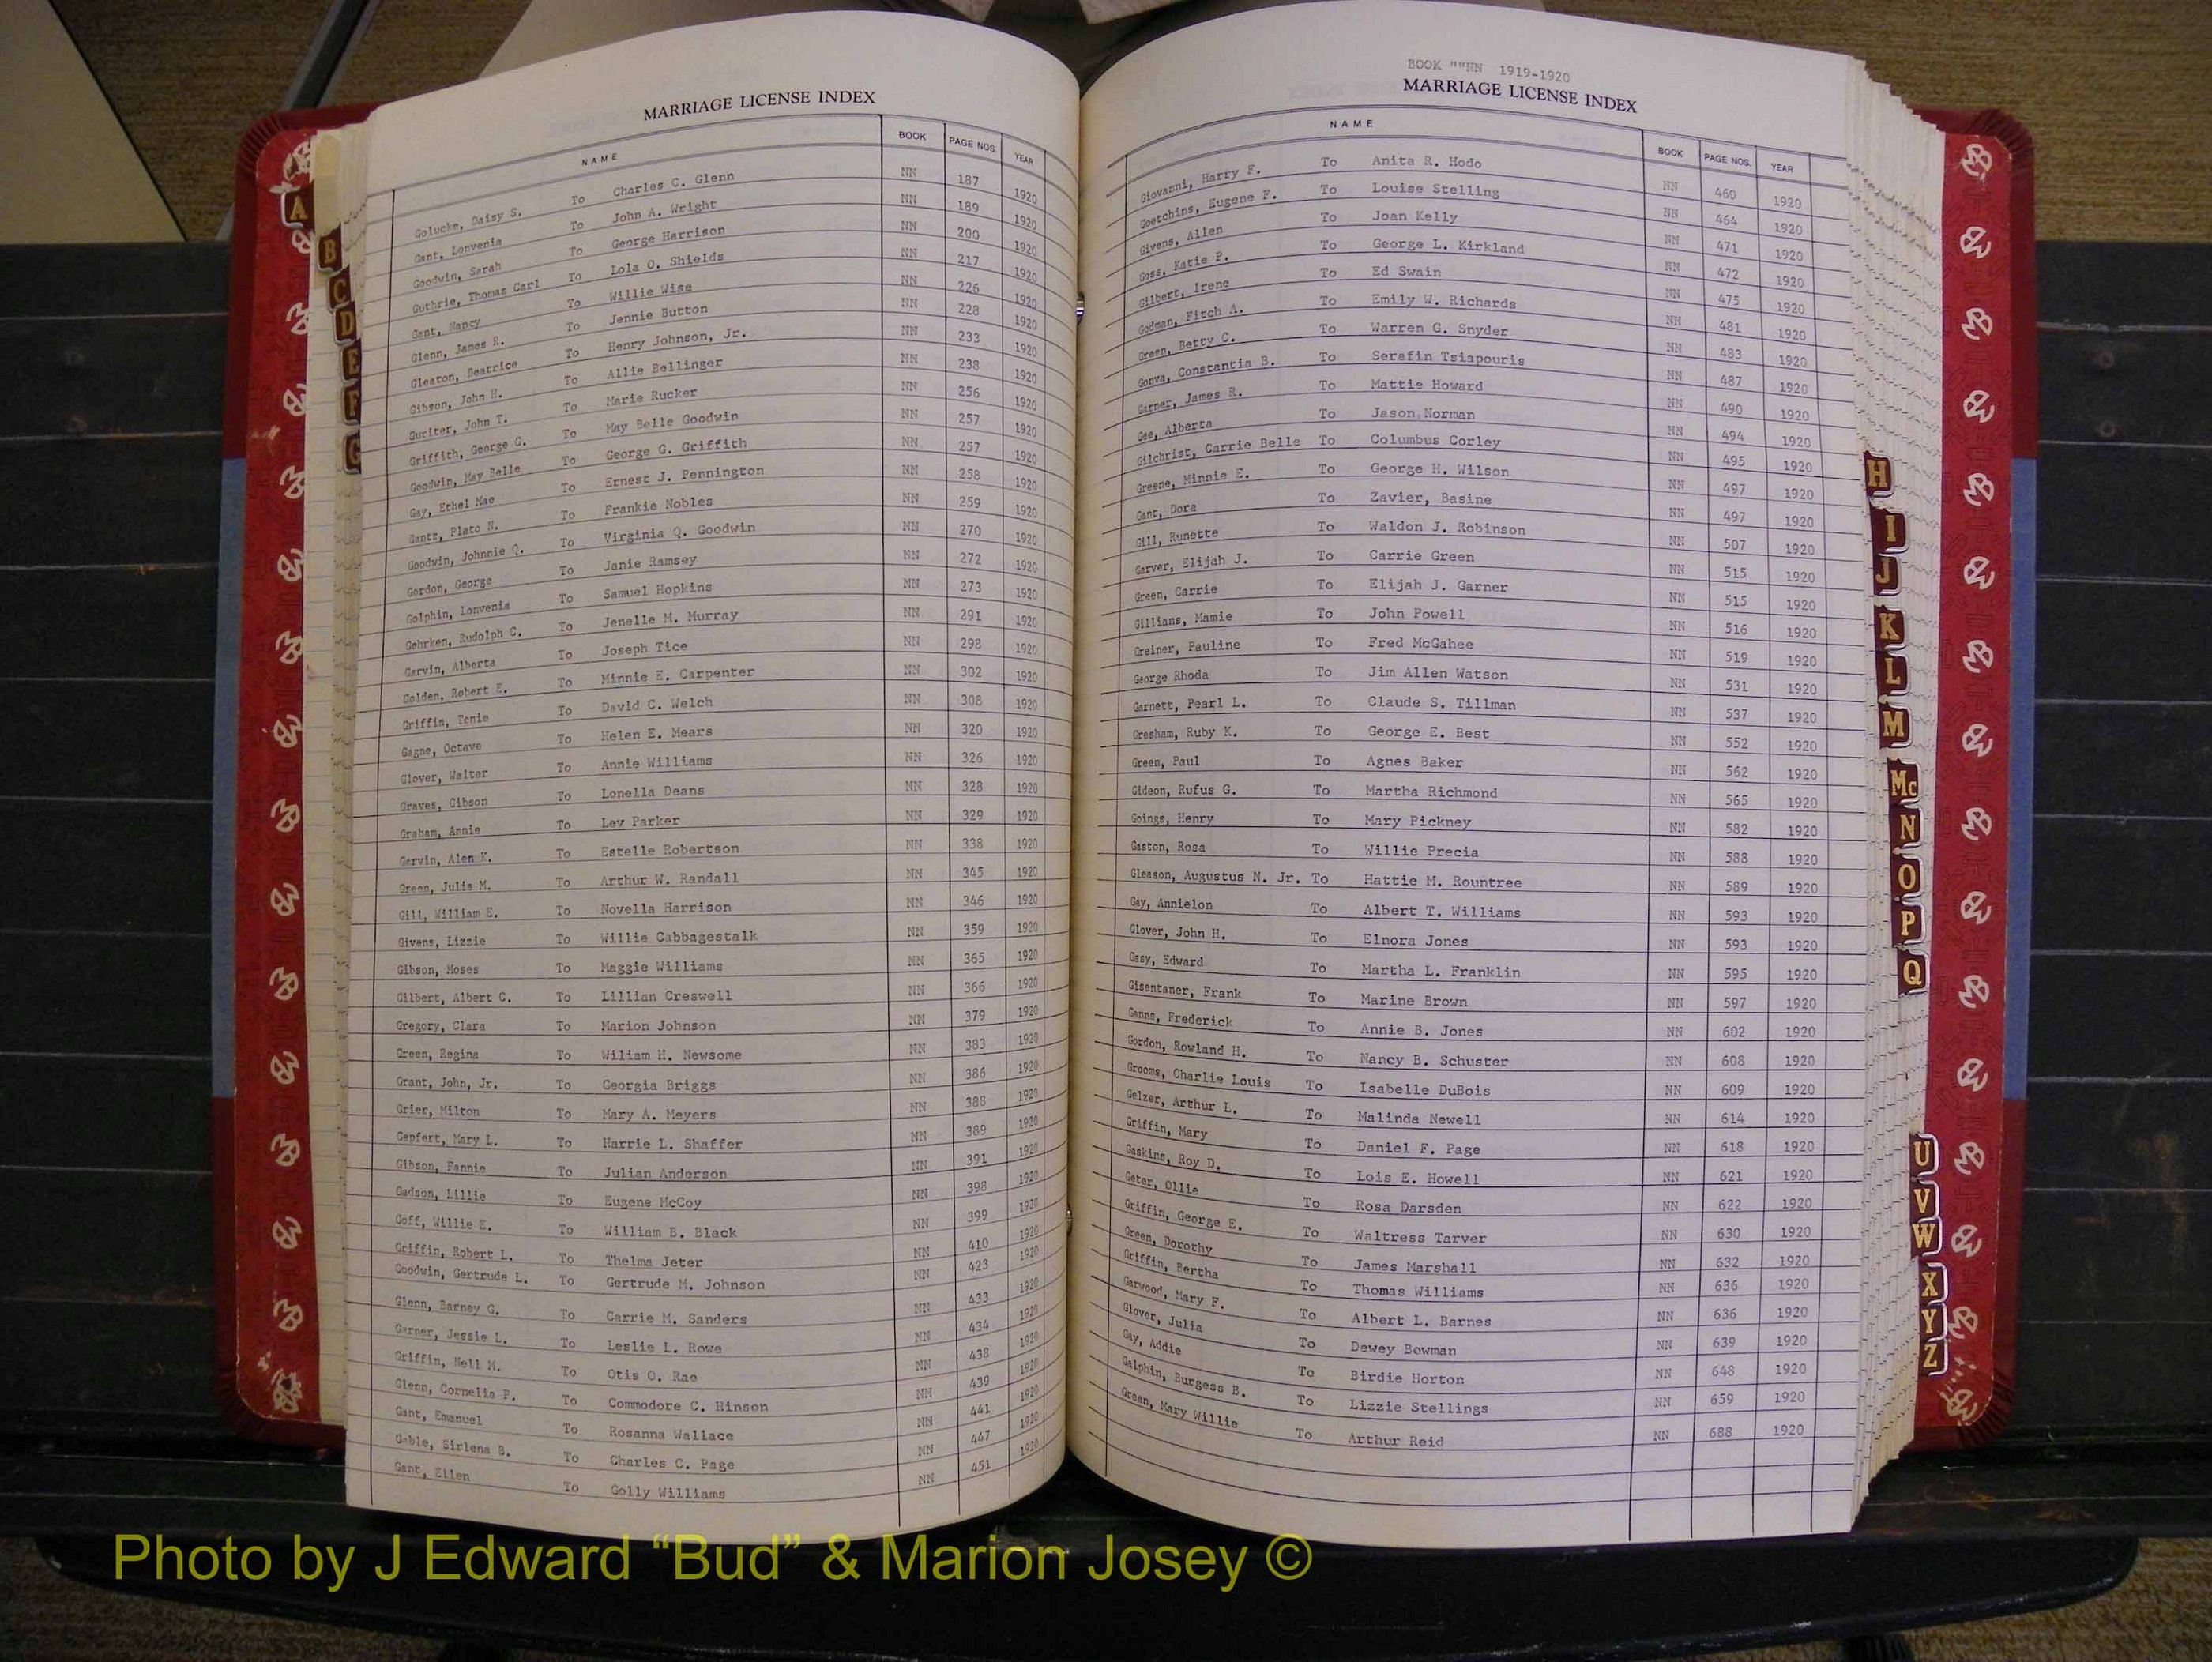 MARRIAGE LICENSE INDEX
NAME BOOK PAGE NOS. YEAR
Golucke, Daisy S. To Charles C. Glenn NN 187 1920
Gant, Lonvenia To John A. Wright NN 189 1920
Goodwin, Sarah To George Harrison NN 200 1920
Guthrie, Thomas Carl To Lola O. Shields NN 217 1920
Gant, Nancy To Willie Wise NN 226 1920
Glenn, James R. To Jennie Button NN 228 1920
Gleaton, Beatrice To Henry Johnson, Jr. NN 233 1920
Gibson, John H. To Allie Bellinger NN 238 1920
Guriter, John T. To Marie Rucker NN 256 1920
Griffith, George G. To May Belle Goodwin NN 257 1920
Goodwin, May Belle To George G. Griffith NN 257 1920
Gay, Ethel Mae To Ernest J. Pennington NN 258 1920
Gantz, Plato N. To Frankie Nobles NN 259 1920
Goodwin, Johnnie Q. To Virginia Q. Goodwin NN 270 1920
Gordon, George To Janie Ramsey NN 272 1920
Golphin, Lonvenia To Samuel Hopkins NN 273 1920
Gehrken, Rudolph C. To Jenelle M. Murray NN 291 1920
Garvin, Alberta To Joseph Tice NN 298 1920
Golden, Robert E. To Minnie E. Carpenter NN 302 1920
Griffin, Tenie To David C. Welch NN 308 1920
Gagne, Octave To Helen E. Mears NN 320 1920
Glover, Walter To Annie Williams NN 326 1920
Graves, Gibson To Lonella Deans NN 328 1920
Graham, Annie To Lev Parker NN 329 1920
Garvin, Alen K. To Estelle Robertson NN 338 1920
Green, Julia M. To Arthur W. Randall NN 345 1920
Gill, William E. To Novella Harrison NN 346 1920
Givens, Lizzie To Willie Cabbagestalk NN 359 1920
Gibson, Moses To Maggie Williams NN 365 1920
Gilbert, Albert C. To Lillian Creswell NN 366 1920
Gregory, Clara To Marion Johnson NN 379 1920
Green, Regina To Wiliam H. Newsome NN 383 1920
Grant, John, Jr. To Georgia Briggs NN 386 1920
Grier, Milton To Mary A. Meyers NN 388 1920
Gepfert, Mary L. To Harrie L. Shaffer NN 389 1920
Gibson, Fannie To Julian Anderson NN 391 1920
Gadson, Lillie To Eugene McCoy NN 398 1920
Goff, Willie E. To William B. Black NN 399 1920
Griffin, Robert L. To Thelma Jeter NN 410 1920
Goodwin, Gertrude L. To Gertrude M. Johnson NN 423 1920
Glenn, Barney G. To Carrie M. Sanders NN 433 1920
Garner, Jessie L. To Leslie L. Rowe NN 434 1920
Griffin, Nell M. To Otis O. Rae NN 438 1920
Glenn, Cornelia P. To Commodore C. Hinson NN 439 1920
Gant, Emanuel To Rosanna Wallace NN 441 1920
Gable, Sirlena B. To Charles C. Page NN 447 1920
Gant, Ellen To Golly Williams NN 451 1920
BOOK ""NN 1919-1920
MARRIAGE LICENSE INDEX
NAME BOOK PAGE NOS. YEAR
Giovanni, Harry F. To Anita R. Hodo NN 460 1920
Goetchins, Eugene F. To Louise Stelling NN 464 1920
Givens, Allen To Joan Kelly NN 471 1920
Goss, Katie P. To George L. Kirkland NN 472 1920
Gilbert, Irene To Ed Swain NN 475 1920
Godman, Fitch A. To Emily W. Richards NN 481 1920
Green, Betty C. To Warren G. Snyder NN 483 1920
Gonva, Constantia B. To Serafin Tsiapouris NN 487 1920
Garner, James R. To Mattie Howard NN 490 1920
Gee, Alberta To Jason Norman NN 494 1920
Gilchrist, Carrie Belle To Columbus Corley NN 495 1920
Greene, Minnie E. To George H. Wilson NN 497 1920
Gant, Dora To Zavier, Basine NN 497 1920
Gill, Runette To Waldon J. Robinson NN 507 1920
Garver, Elijah J. To Carrie Green NN 515 1920
Green, Carrie To Elijah J. Garner NN 515 1920
Gillians, Mamie To John Powell NN 516 1920
Greiner, Pauline To Fred McGahee NN 519 1920
George Rhoda To Jim Allen Watson NN 531 1920
Garnett, Pearl L. To Claude S. Tillman NN 537 1920
Gresham, Ruby K. To George E. Best NN 552 1920
Green, Paul To Agnes Baker NN 562 1920
Gideon, Rufus G. To Martha Richmond NN 565 1920
Goings, Henry To Mary Pickney NN 582 1920
Gaston, Rosa To Willie Precia NN 588 1920
Gleason, Augustus N. Jr. To Hattie M. Rountree NN 589 1920
Gay, Annielon To Albert T. Williams NN 593 1920
Glover, John H. To Elnora Jones NN 593 1920
Gasy, Edward To Martha L. Franklin NN 595 1920
Gisentaner, Frank To Marine Brown NN 597 1920
Ganns, Frederick To Annie B. Jones NN 602 1920
Gordon, Rowland H. To Nancy B. Schuster NN 608 1920
Grooms, Charlie Louis To Isabelle DuBois NN 609 1920
Gelzer, Arthur L. To Malinda Newell NN 614 1920
Griffin, Mary To Daniel F. Page NN 618 1920
Gaskins, Roy D. To Lois E. Howell NN 621 1920
Geter, Ollie To Rosa Darsden NN 622 1920
Griffin, George E. To Waltress Tarver NN 630 1920
Green, Dorothy To James Marshall NN 632 1920
Griffin, Bertha To Thomas Williams NN 636 1920
Garwood, Mary F. To Albert L. Barnes NN 636 1920
Glover, Julia To Dewey Bowman NN 639 1920
Gay, Addie To Birdie Horton NN 648 1920
Galphin, Burgess B. To Lizzie Stellings NN 659 1920
Green, Mary Willie To Arthur Reid NN 688 1920
A
B
C
D
E
F
G
H
I
J
K
L
M
Mc
N
O
P
Q
U
V
W
X
Y
Z
Photo by J Edward “Bud” & Marion Josey ©